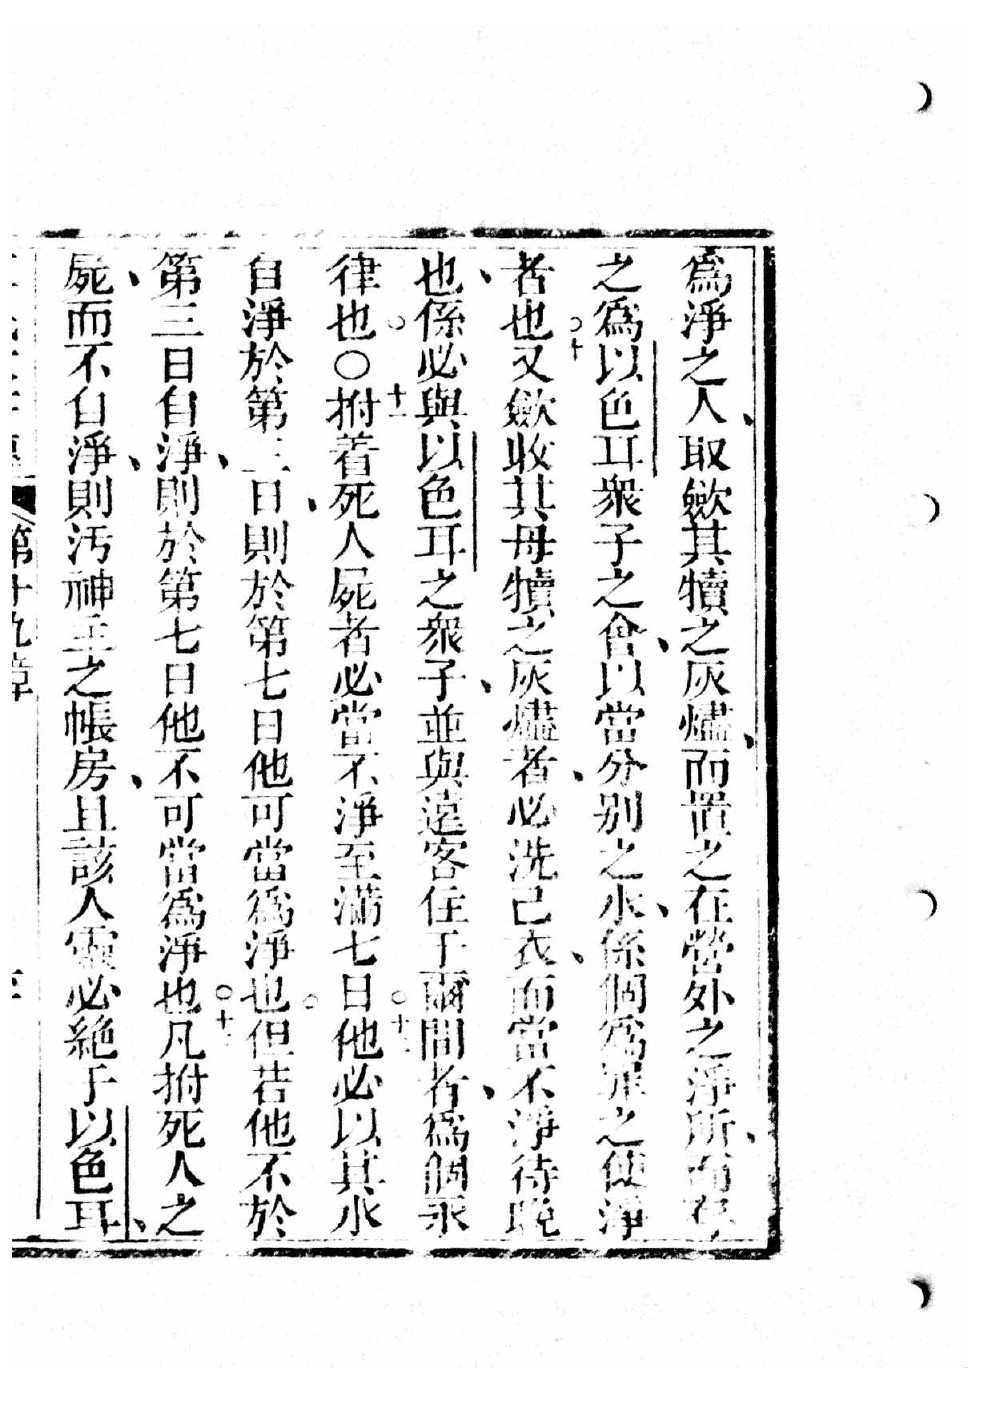 為淨之人、取斂其犢之灰燼、而置之在營外之淨所、而存
之為以色耳衆子之會、以當分別之水、係個為罪之使淨
者也○十又斂收其母犢之灰燼者、必洗己衣、而當不淨待晚
也、係必與以色耳之衆子、並與遠客住于爾間者、為個永
律也○十一○拊着死人屍者必當不淨至滿七日○十二他必以其水
自淨於第三日、則於第七日他可當為淨也○但若他不於
第三日自淨、則於第七日他不可當為淨也○十三凡拊死人之
屍、而不自淨、則汚神主之帳房、且該人靈必絶于以色耳、
第十九章